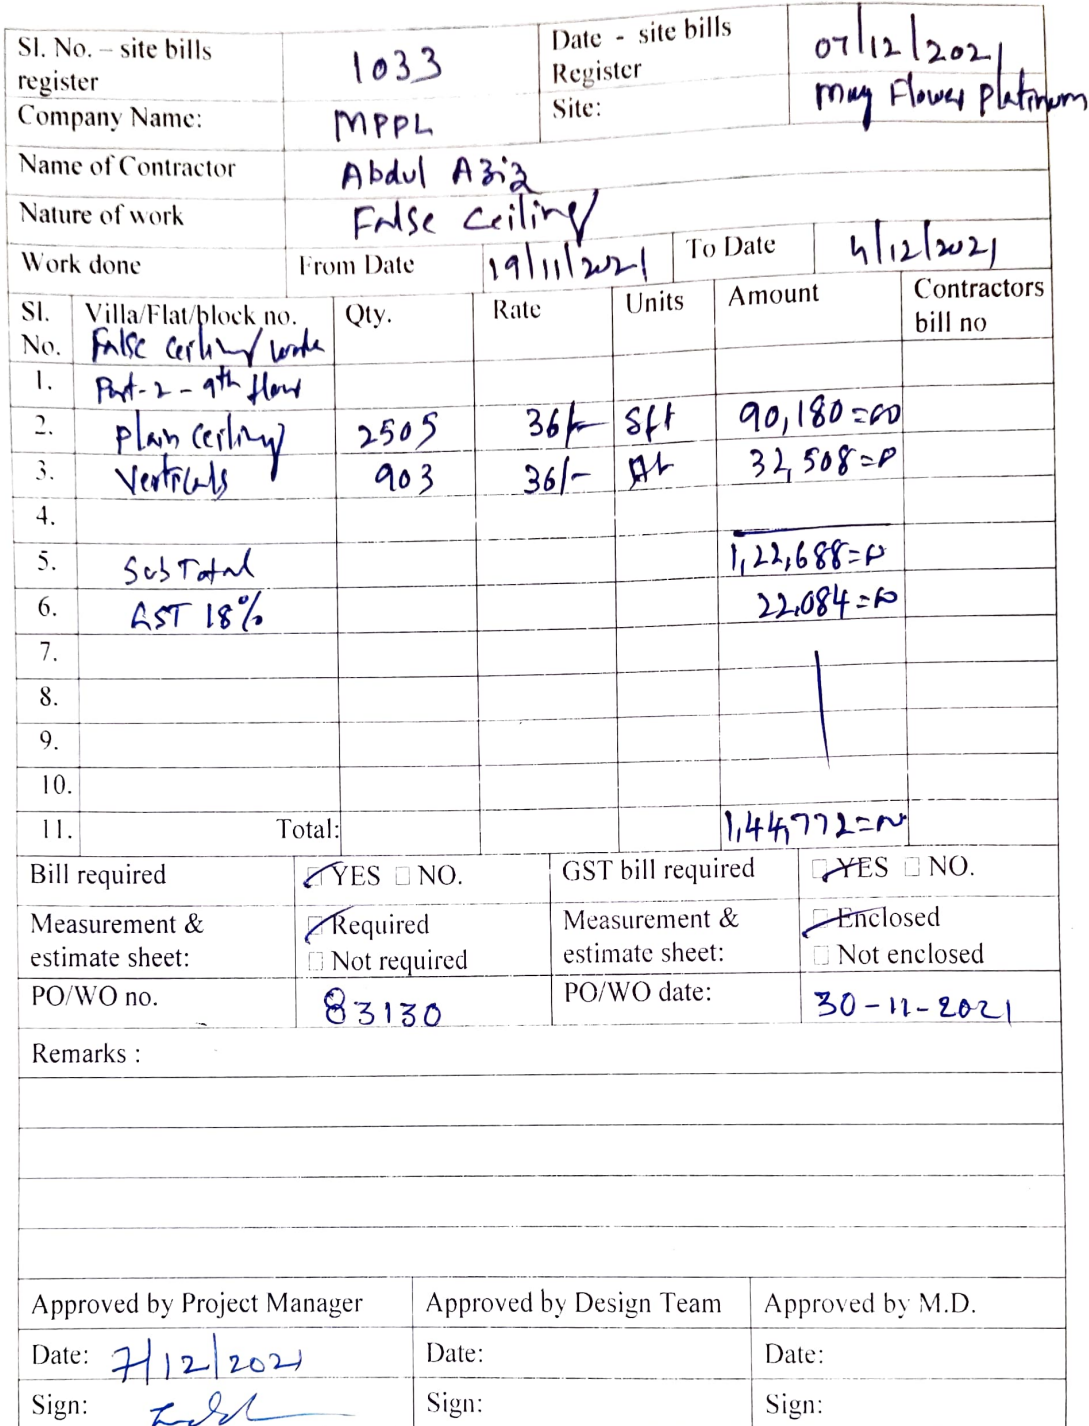 Sl. No. – site bills register 1033 Date - site bills Register 07/12/2021
Company Name: MPPL Site: May Flower Platinum
Name of Contractor Abdul Aziz
Nature of work False Ceiling
Work done From Date 19/11/2021 To Date 4/12/2021
Sl. No. Villa/Flat/block no. Qty. Rate Units Amount Contractors bill no
False Ceiling work
1. Part-2 - 9th floor
2. Plain Ceiling 2505 36/- Sft 90,180=00
3. Verticals 903 36/- 32,508=00
4.
5. Sub Total 1,22,688=00
6. GST 18% 22,084=00
7.
8.
9.
10.
11. Total: 1,44,772=00
Bill required YES NO. GST bill required YES NO.
Measurement & estimate sheet: Required Measurement & estimate sheet: Enclosed
Not required Not enclosed
PO/WO no. 83130 PO/WO date: 30-11-2021
Remarks :
Approved by Project Manager Approved by Design Team Approved by M.D.
Date: 7/12/2021 Date: Date:
Sign: Sign: Sign: